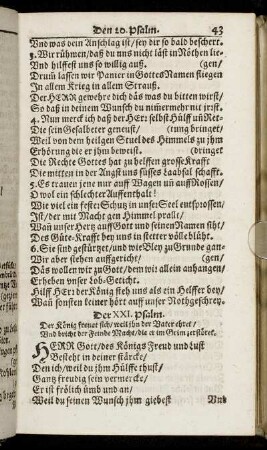 Den 20. Psalm. 43
Vnd was dein Anschlag ist/ sey dir so bald beschert.
3. Wir rühmen/daß du uns nicht läst in Nöthen lie-
Vnd hilffest uns so willig auß. (gen/
Drumb lassen wir Panier in Gottes Namen fliegen
In allem Krieg in allem Strauß.
Der HERR gewehre dich das was du bitten wirst/
So daß in deinem Wunsch du nimmermehr nit irst.
4. Nun merck ich daß der Herr selbst Hülff uñ Ret-
Die sein Gesalbeter geneust/ (tung bringet/
Weil von dem heilgen Stuel des Himmels zu jhm
Erhörung die er jhm beweist. (dringet
Die Rechte Gottes hat zu helffen grosse Krafft
Die mitten in der Angst uns süsses Laabsal schafft.
5. Es trauen jene nur auff Wagen uñ auff Rossen/
O wol ein schlechter Auffenthalt!
Wir viel ein fester Schutz in unser Seel entsprossen/
Ist/ der mit Macht gen Himmel prallt/
Wañ unser Hertz auff Gott und seinen Namen siht/
Des Güte-Krafft bey uns in stetter völle blüht.
6. Sie sind gestürtzet/ und wie Bley zu Grunde gan-
Wir aber stehen auffgericht/ (gen/
Das wollen wir zu Gott/ dem wir allein anhangen/
Erheben unser Lob-Gericht.
Hilff Herr der König steh uns als ein Helffer bey/
Wañ sonsten keiner hört auff unser Nothgeschrey.
Der XXI. Psalm.
Der König freuet sich/ weil jhn der Vater ehret/
Und bricht der Feinde Macht/ die er im Grim zerstöret.
HERR Gott/ des Königs Freud und Lust
Besteht in deiner stärcke/
Den ich/ weil du jhm Hülffe thust/
Gantz freudig sein vermercke/
Er ist frölich ümb und an/
Weil du seinen Wunsch jhm giebest Vnd